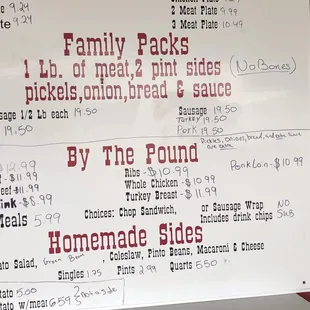 e 9.24
te 9.24
2 Meat Plate 9.99
3 Meat Plate 10.49
Family Packs
1 Lb. of meat,2 pint sides (No Bones)
pickels,onion,bread & sauce
sage 1/2 Lb each 19.50
Sausage 19.50
Turkey 19.50
19.50
Pork 19.50
Pickles, onions, bread, and
are extra
By The Pound
$12.99
Ribs - $10.99
Pork Loin - $10.99
- $11.99
Whole Chicken - $10.99
ef $11.99
Turkey Breast - $11.99
ink - $8.99
Meals 5.99
Choices: Chop Sandwich,
or Sausage Wrap
Includes drink chips
NO
Sub
Homemade Sides
tato Salad, Green Bean, Coleslaw, Pinto Beans, Macaroni & Cheese
Singles 1.75 Pints 2.99 Quarts 5.50
tato 5.00
tato w/meat 6.59
Not a side